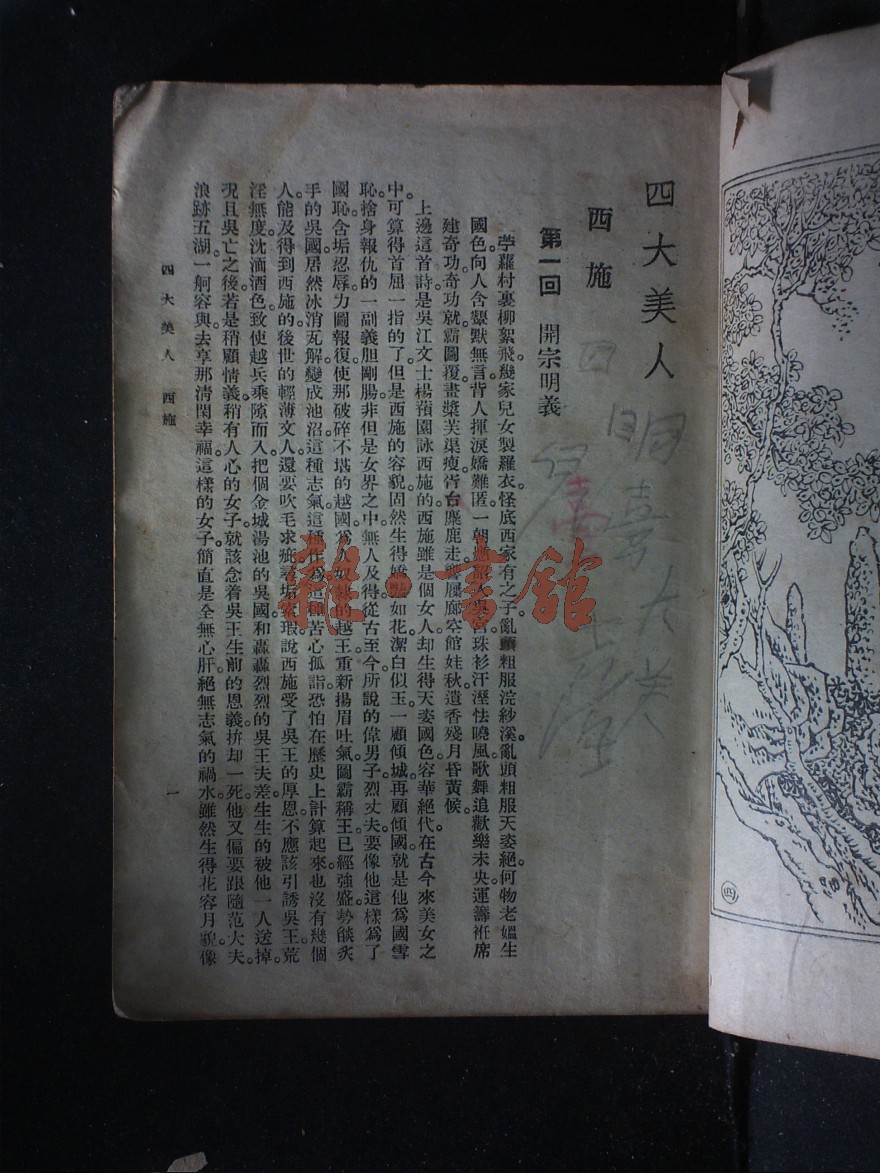 四大美人
西施
第一回　開宗明義
苧蘿村裏柳絮飛。幾家兒女製羅衣。怪底西家有之子。亂頭粗服浣紗溪。亂頭粗服天姿絕。何物老嫗生
國色。向人含顰默無言。背人揮淚嬌難匿。一朝應詔入吳宮。珠衫汗溼怯曉風。歌舞追歡樂未央。運籌袵席
建奇功。奇功就。霸圖復。畫槳芙渠瘦。胥台麋鹿走。響屧廊空館娃秋。遺香殘月昏黃候。
上邊這首詩。是吳江文士楊蘋園詠西施的。西施雖是個女人。却生得天姿國色。容華絕代。在古今來美女之
中。可算得首屈一指的了。但是西施的容貌。固然生得嬌豔如花。潔白似玉。一顧傾城。再顧傾國。就是他爲國雪
恥。捨身報仇的一副義胆剛腸。非但是女界之中。無人及得。從古至今。所說的偉男子。烈丈夫。要像他這樣爲了
國恥。含垢忍辱。力圖報復。使那破碎不堪的越國。爲人奴隸的越王。重新揚眉吐氣。圖霸稱王。已經強盛。勢燄炙
手的吳國。居然冰消瓦解。變成池沼。這種志氣。這種作爲。這種苦心孤詣。恐怕在歷史上計算起來。也沒有幾個
人能及得到西施的。後世的輕薄文人。還要吹毛求疵。尋垢索瑕。說西施受了吳王的厚恩。不應該引誘吳王。荒
淫無度。沈湎酒色。致使越兵乘隙而入。把個金城湯池的吳國。和轟轟烈烈的吳王夫差。生生的被他一人送掉。
况且吳亡之後。若是稍顧情義。稍有人心的女子。就該念着吳王生前的恩義。拚却一死。他又偏要跟隨范大夫。
浪跡五湖。一舸容與。去享那清閑幸福。這樣的女子。簡直是全無心肝。絕無志氣的禍水。雖然生得花容月貌。像
四大美人　西施
一
明喜大美
四
喜
雜·書館
四